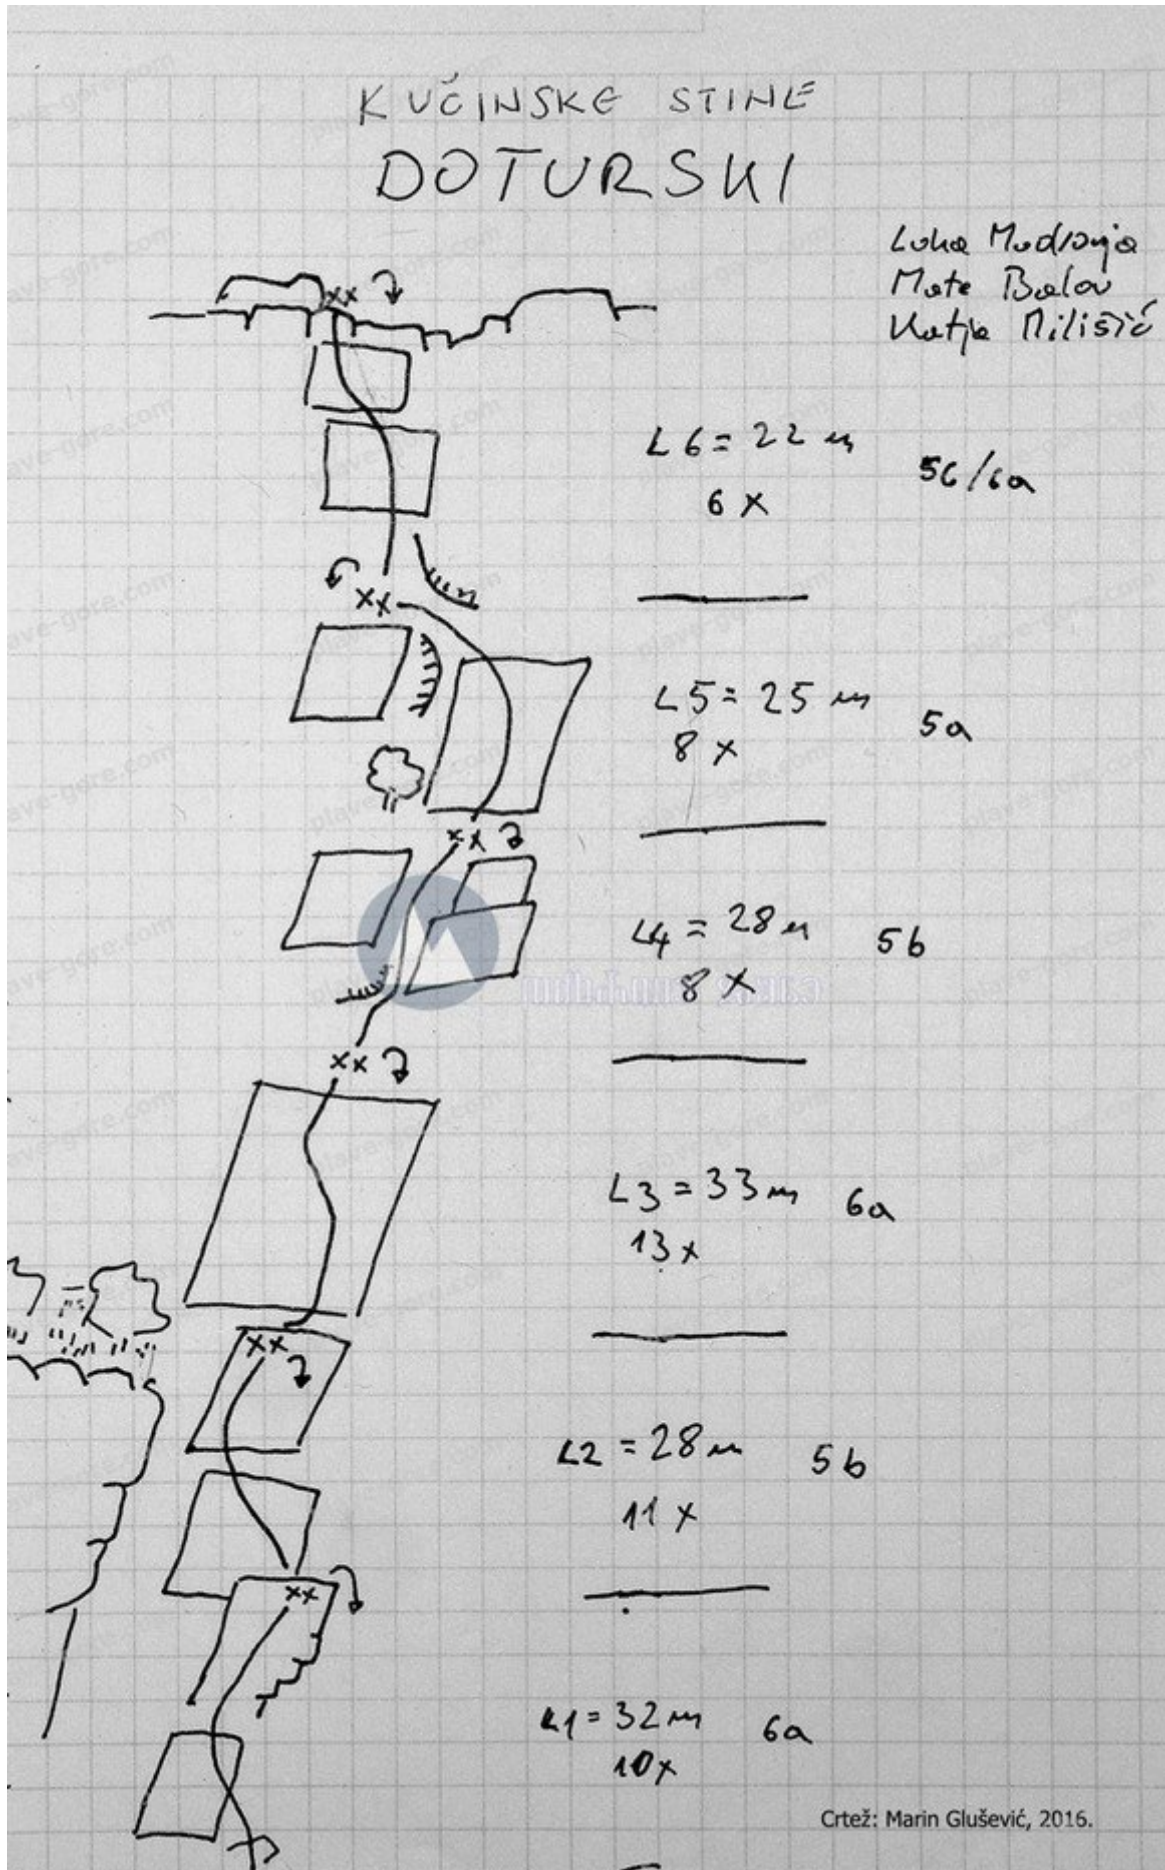 KUČINSKE STINE
DOTURSKI
Luka Modronja
Mate Balov
Katja Milišić
L6 = 22 m
5c/6a
6 x
L5 = 25 m
5a
8 x
L4 = 28 m
5b
8 x
L3 = 33 m
6a
13 x
L2 = 28 m
5b
11 x
L1 = 32 m
6a
10x
Crtež: Marin Glušević, 2016.
plave-gore.com